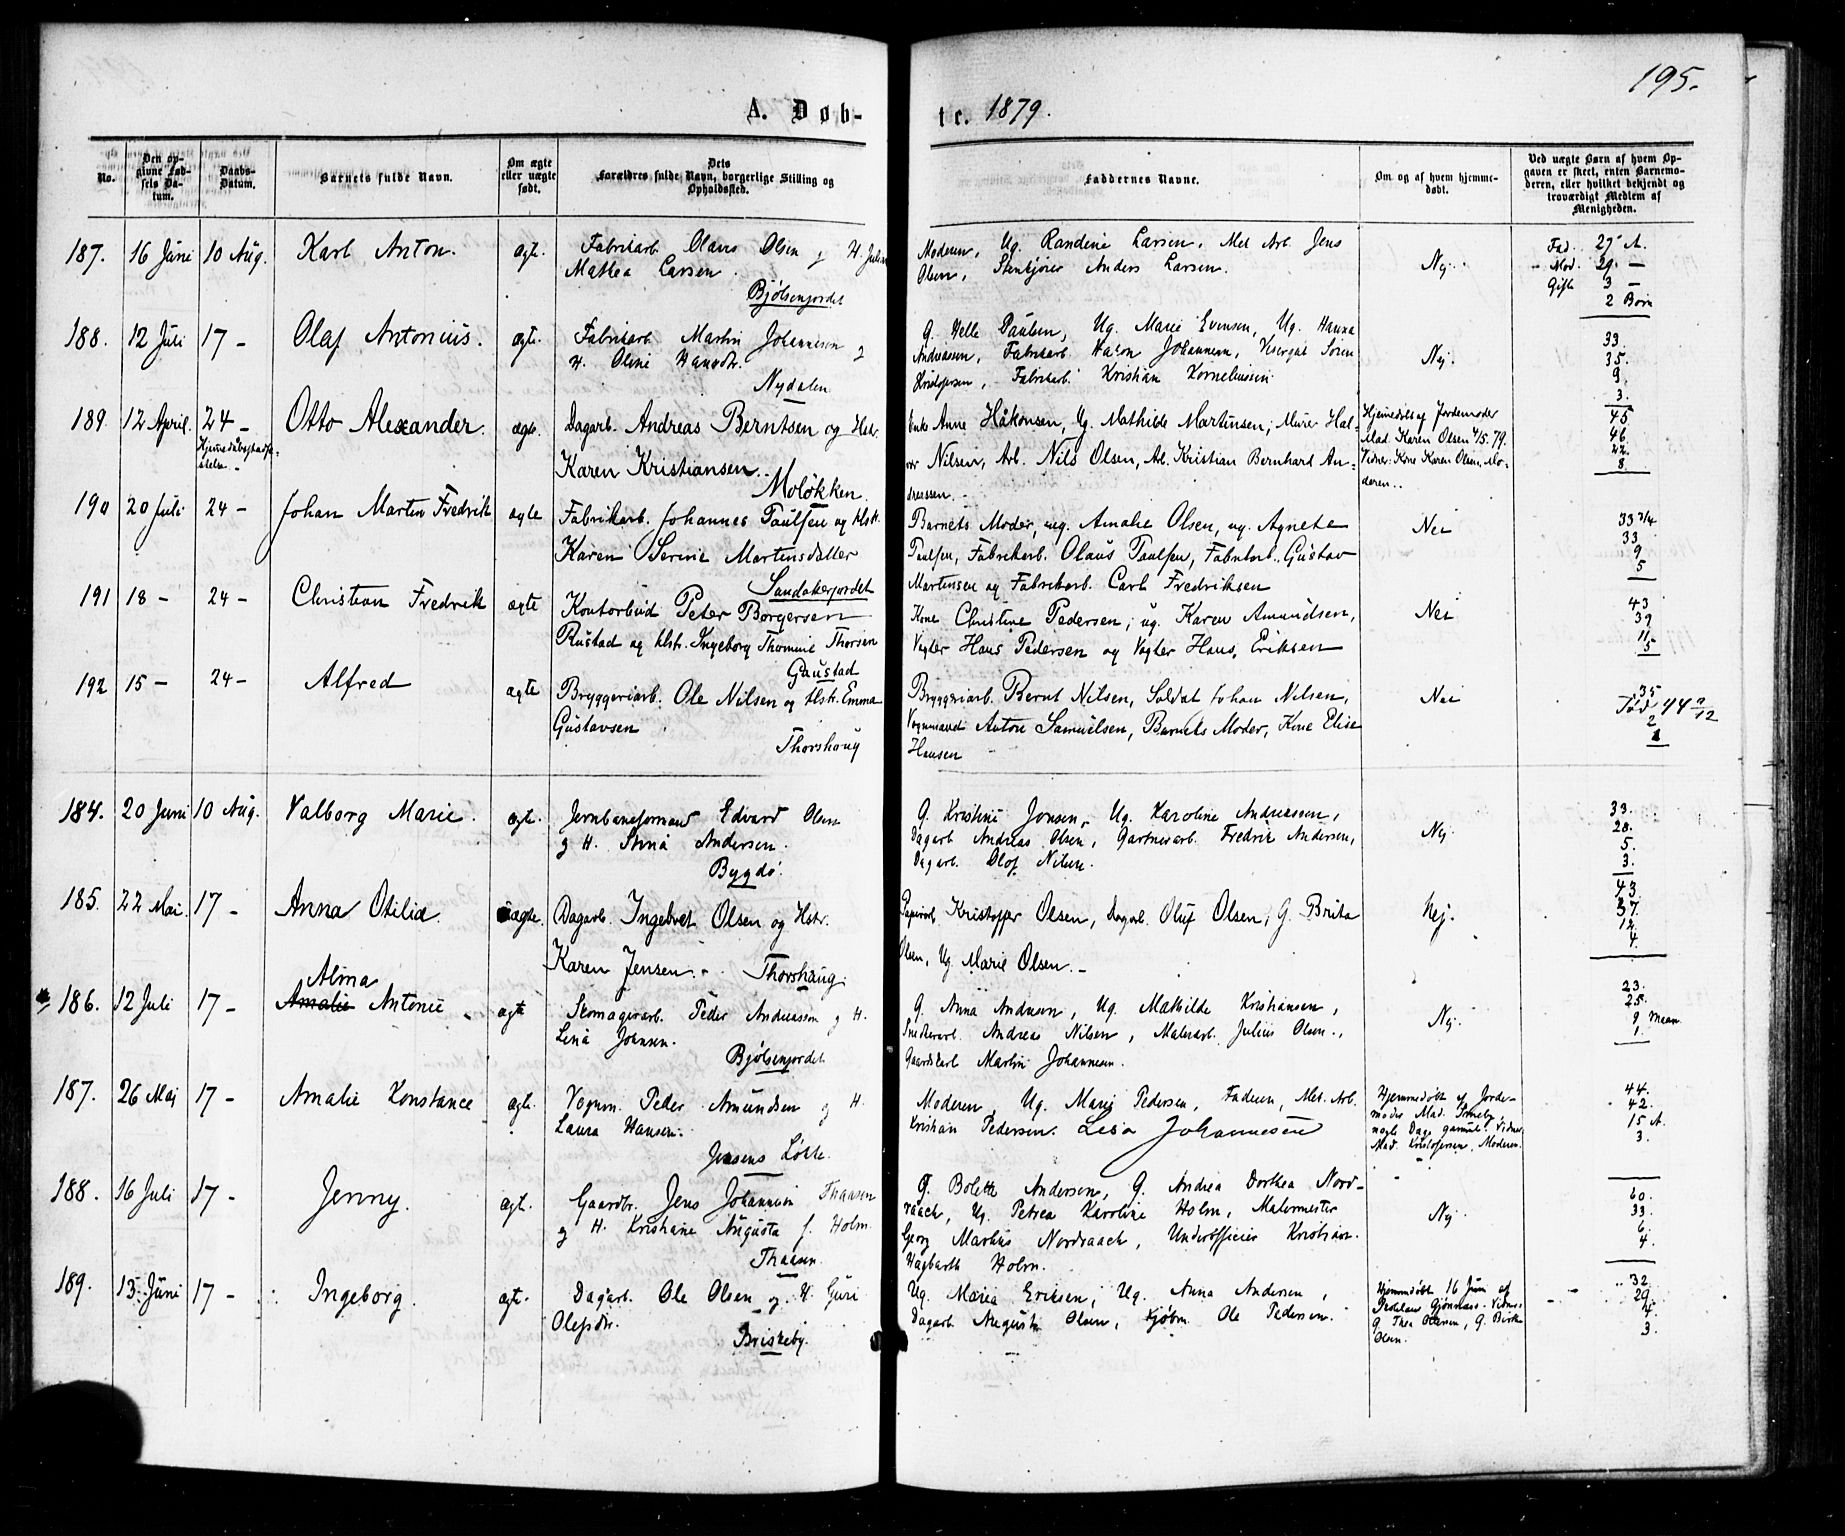 195.
A. Døb-
te. 1879.
No.
Den opgivne Fødsels Datum.
Daabs-Datum.
Barnets fulde Navn.
Om ægte eller uægte født.
Dets Forældres fulde Navn, borgerlige Stilling og Opholdssted.
Faddernes Navne.
Om og af hvem hjemmedøbt.
Ved uægte Børn af hvem Opgaven er skeet, enten Barnemoderen, eller hvilket bekjendt og troværdigt Medlem af Menigheden.
187. 16 Juni 10 Aug. Karl Anton. ægte. Fabrikarb. Olaus Olsen og H. Julie
Mathea Larsen.
Bjølsenjordet
Moderen, Ug. Randine Larsen, Mek. Arb. Jens
Olsen, Stenkjører Anders Larsen.
Nej.
Fad. 27 A.
Mod. 29 —
Gift 3 —
2 Børn
188. 12 Juli 17 - Olaf Antonius. ægte. Fabrikarb. Martin Johannesen og
H. Oline Hansdtr.
Nydalen
G. Helle Paulsen, Ug. Marie Evensen, Ug. Hanna
Andreasen, Fabrikarb. Hakon Johannesen, Søren
Kristofersen, Fabrikarb. Kristian Korneliussen
Nej.
33.
35.
9.
3.
189. 12 April. 24 - Otto Alexander. ægte. Dagarb. Andreas Berntsen og Hstr.
Karen Kristiansen.
Moløkken
Enke Anne Håkonsen, Ug. Mathilde Martinsen, Murer Hal-
vor Nilsen, Arb. Nils Olsen, Arb. Kristian Bernhard An-
dreassen.
Hjemmedøbt af Jordemoder
Mad. Karen Olsen 4/5. 79.
Vidner: Kone Karen Olsen, Mo-
deren.
45
46.
22.
8.
190 20 Juli 24 - Johan Martin Fredrik ægte Fabrikarb. Johannes Paulsen og Hstr.
Karen Serine Martensdatter
Sandakerjordet
Barnets Moder, ug. Amalie Olsen, ug. Agnete
Paulsen, Fabrikarb. Olaus Paulsen, Fabrikarb. Gustav
Martensen og Fabrikarb. Carl Fredriksen
Nei
33 3/4
33
9
5
191 18 - 24 - Christian Fredrik ægte Kontorbud Peter Borgersen
Rustad og Hstr. Ingeborg Thomine Thorsen
Gaustad
Kone Christine Pedersen, ug. Karen Amundsen,
Vogter Hans Pedersen og Vogter Hans Eriksen
Nei
43
39
11
5
192 15 - 24 - Alfred ægte Bryggeriarb. Ole Nilsen og Hstr. Emma
Gustavsen
Thorshaug
Bryggeriarb. Bernt Nilsen, Soldat Johan Nilsen,
Vognmand Anton Samuelsen, Barnets Moder, Kone Elise
Hansen
Nei
35
2
1
184. 20 Juni 10 Aug. Valborg Marie. ægte. Jernbaneformand Edvard Olsen
og H. Stina Andersen.
Bygdø.
G. Kristine Jonsen, Ug. Karoline Andreassen,
Dagarb. Andreas Olsen, Gartnerarb. Fredrik Andersen,
Dagarb. Olof Nilsen.
Nej.
33.
28.
5.
3.
185. 22 Mai. 17 - Anna Otilia. ægte. Dagarb. Ingebret Olsen og Hstr.
Karen Jensen. Thorshaug.
Papirarb. Kristoffer Olsen, Dagarb. Oluf Olsen, G. Brita
Olsen, Ug. Marie Olsen.
Nej.
43.
37.
12.
4.
Alma
186. 12 Juli 17 - Amalie Antonie ægte Skomagerarb. Peder Andreassen og H.
Lina Johnsen.
Bjølsenjordet
G. Anna Andersen, Ug. Mathilde Kristiansen,
Snedkerarb. Andreas Nilsen, Malerarb. Julius Olsen,
Gaardskarl Martin Johannesen.
Nej.
23.
25.
9 Maan
1.
187. 26 Maj 17 - Amalie Konstance ægte. Vognm. Peder Amundsen og H.
Laura Hansen.
Jensens Løkke.
Moderen, Ug. Marie Pedersen, Faderen, Mek. Arb.
Kristian Pedersen. Lesa Johannesen
Hjemmedøbt af Jorde-
moder Mad.
nogle Dage gammel. Vidner
Mad. Kristofersen, Moderen.
44.
42.
15 A.
3.
188. 16 Juli 17 - Jenny. ægte. Gaardbr. Jens Johannesen Thaasen
og H. Kristiane Augusta f. Holm.
Thaasen
G. Bolette Andersen, G. Andrea Dorthea Nord-
raach, Ug. Petrea Karoline Holm, Malermester
Georg Markus Nordraach, Underofficier Kristian
Hagbarth Holm.
Nej.
60.
33.
6.
4.
189. 13 Juni 17 - Ingeborg. ægte. Dagarb. Ole Olsen og H. Guri
Olefsdtr.
Briskeby.
Ug. Maria Eriksen, Ug. Anna Andersen,
Dagarb. August Olsen, Kjøbm. Ole Pedersen.
Hjemmedøbt 16 Juni af
Vidner
G. Thea Olsen, G.
Olsen.
32.
29.
4.
3.